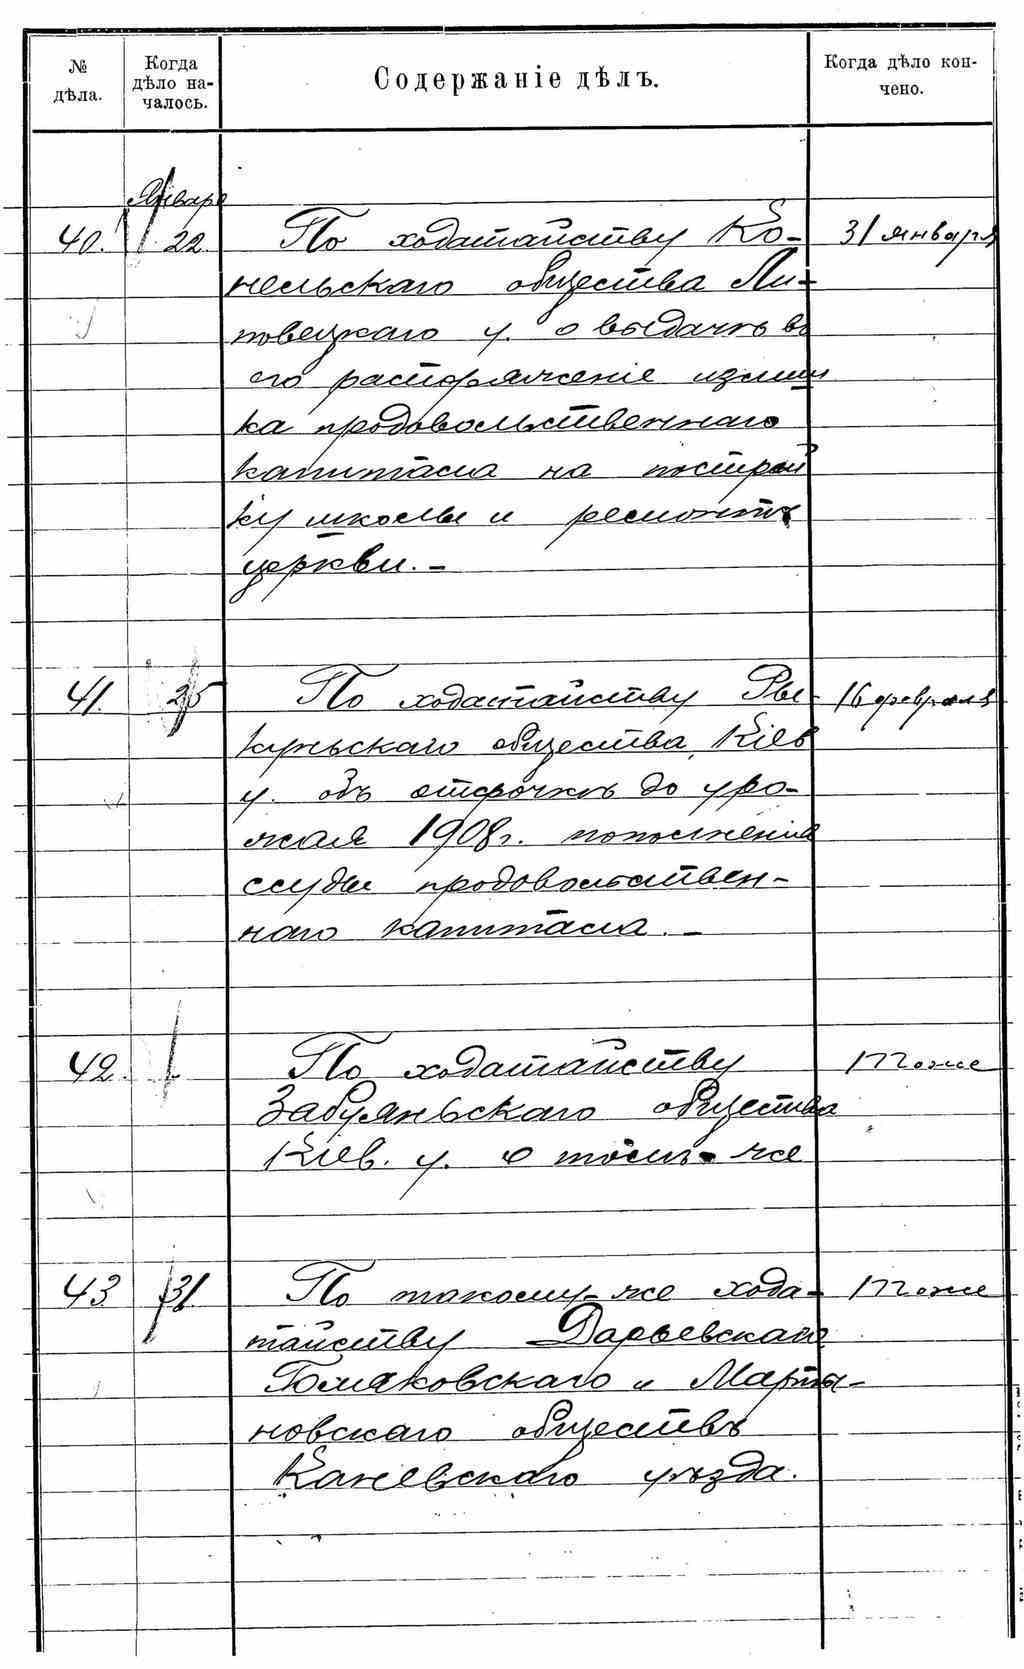 № дѣла.
Когда дѣло на-
чалось.
Содержаніе дѣлъ.
Когда дѣло кон-
чено.
Январь
40. 22. По ходатайству Ко- 31 января
нельскаго общества Ли-
повецкаго у. о выдачѣ въ
его распоряженіе излиш
ка продовольственнаго
капитала на построй
ку школы и ремонтъ
церкви. –
41. 25 По ходатайству Ры- 16 февраля
куньскаго общества, Кіев
у. объ отсрочкѣ до уро-
жая 1908 г. пополненія
ссуды продовольствен-
наго капитала. –
42. По ходатайству Тоже
Забуяньскаго общества
Кіев. у. о томъ-же
43 31. По такому-же хода- Тоже
тайству Дарьевскаго,
Гомяковскаго и Марты-
новскаго обществъ
Каневскаго уѣзда.